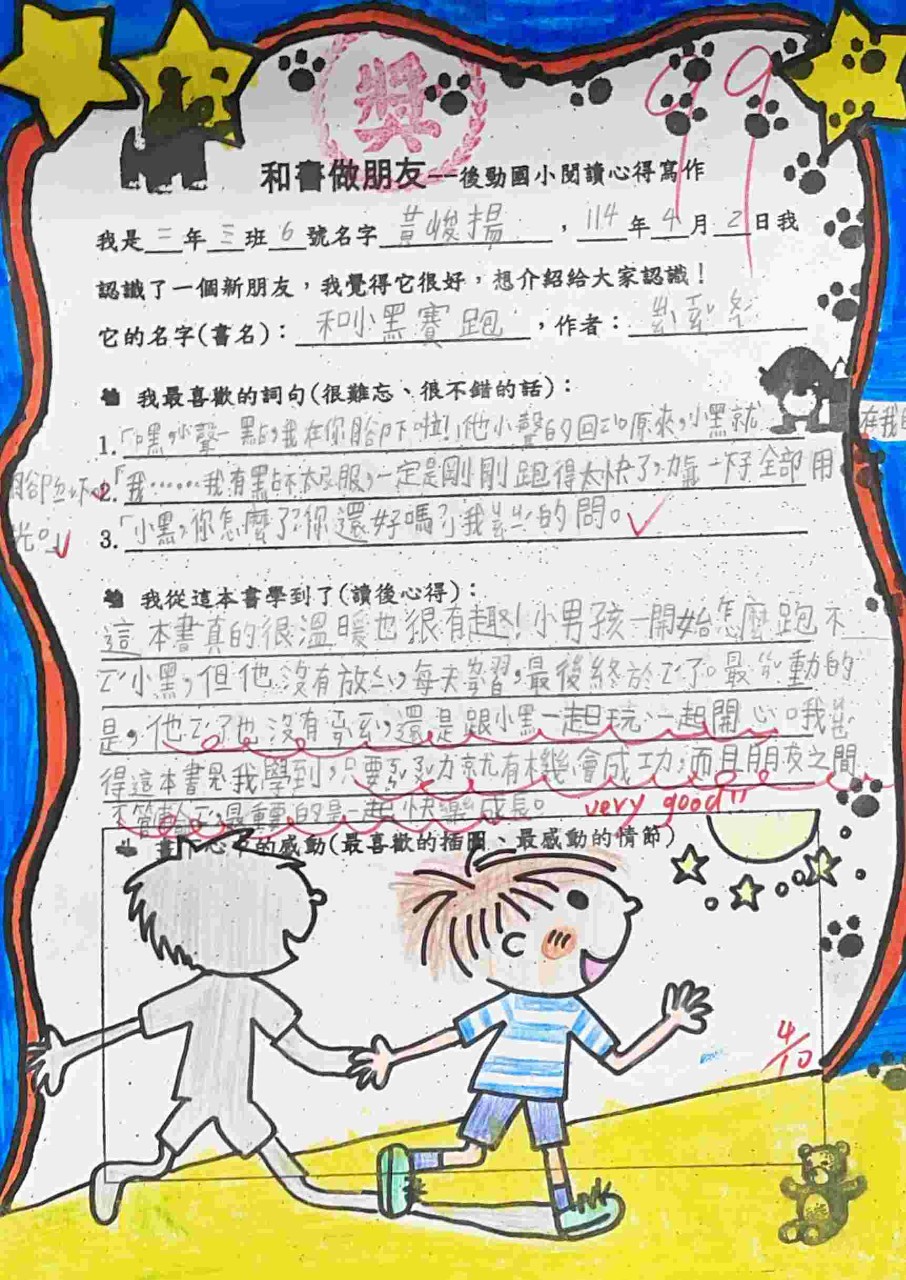 獎
99
和書做朋友—後勁國小閱讀心得寫作
我是三年三班6號名字黃峻揚，114年4月2日我
認識了一個新朋友，我覺得它很好，想介紹給大家認識！
它的名字(書名)：和小黑賽跑，作者：
我最喜歡的詞句(很難忘、很不錯的話)：
1.「嘿，小聲一點，我在你腳下啦!」他小聲的回 原來，小黑就在我的
腳 下。
2.「我……我有點不太舒服，一定是剛剛跑得太快了，力氣一下子全部用
光。」
3.「小黑，你怎麼了?你還好嗎?」我 的問。
我從這本書學到了(讀後心得)：
這本書真的很溫暖也很有趣!小男孩一開始怎麼跑不
小黑，但他沒有放 ，每天 習，最後終於 了。最 動的
是，他 了也沒有 ，還是跟小黑一起玩、一起開心。我
得這本書 我學到，只要 力就有機會成功，而且朋友之間
不管 ，最重要的是一起快樂成長。
very good!!
畫 心中的感動(最喜歡的插圖、最感動的情節)
4/10